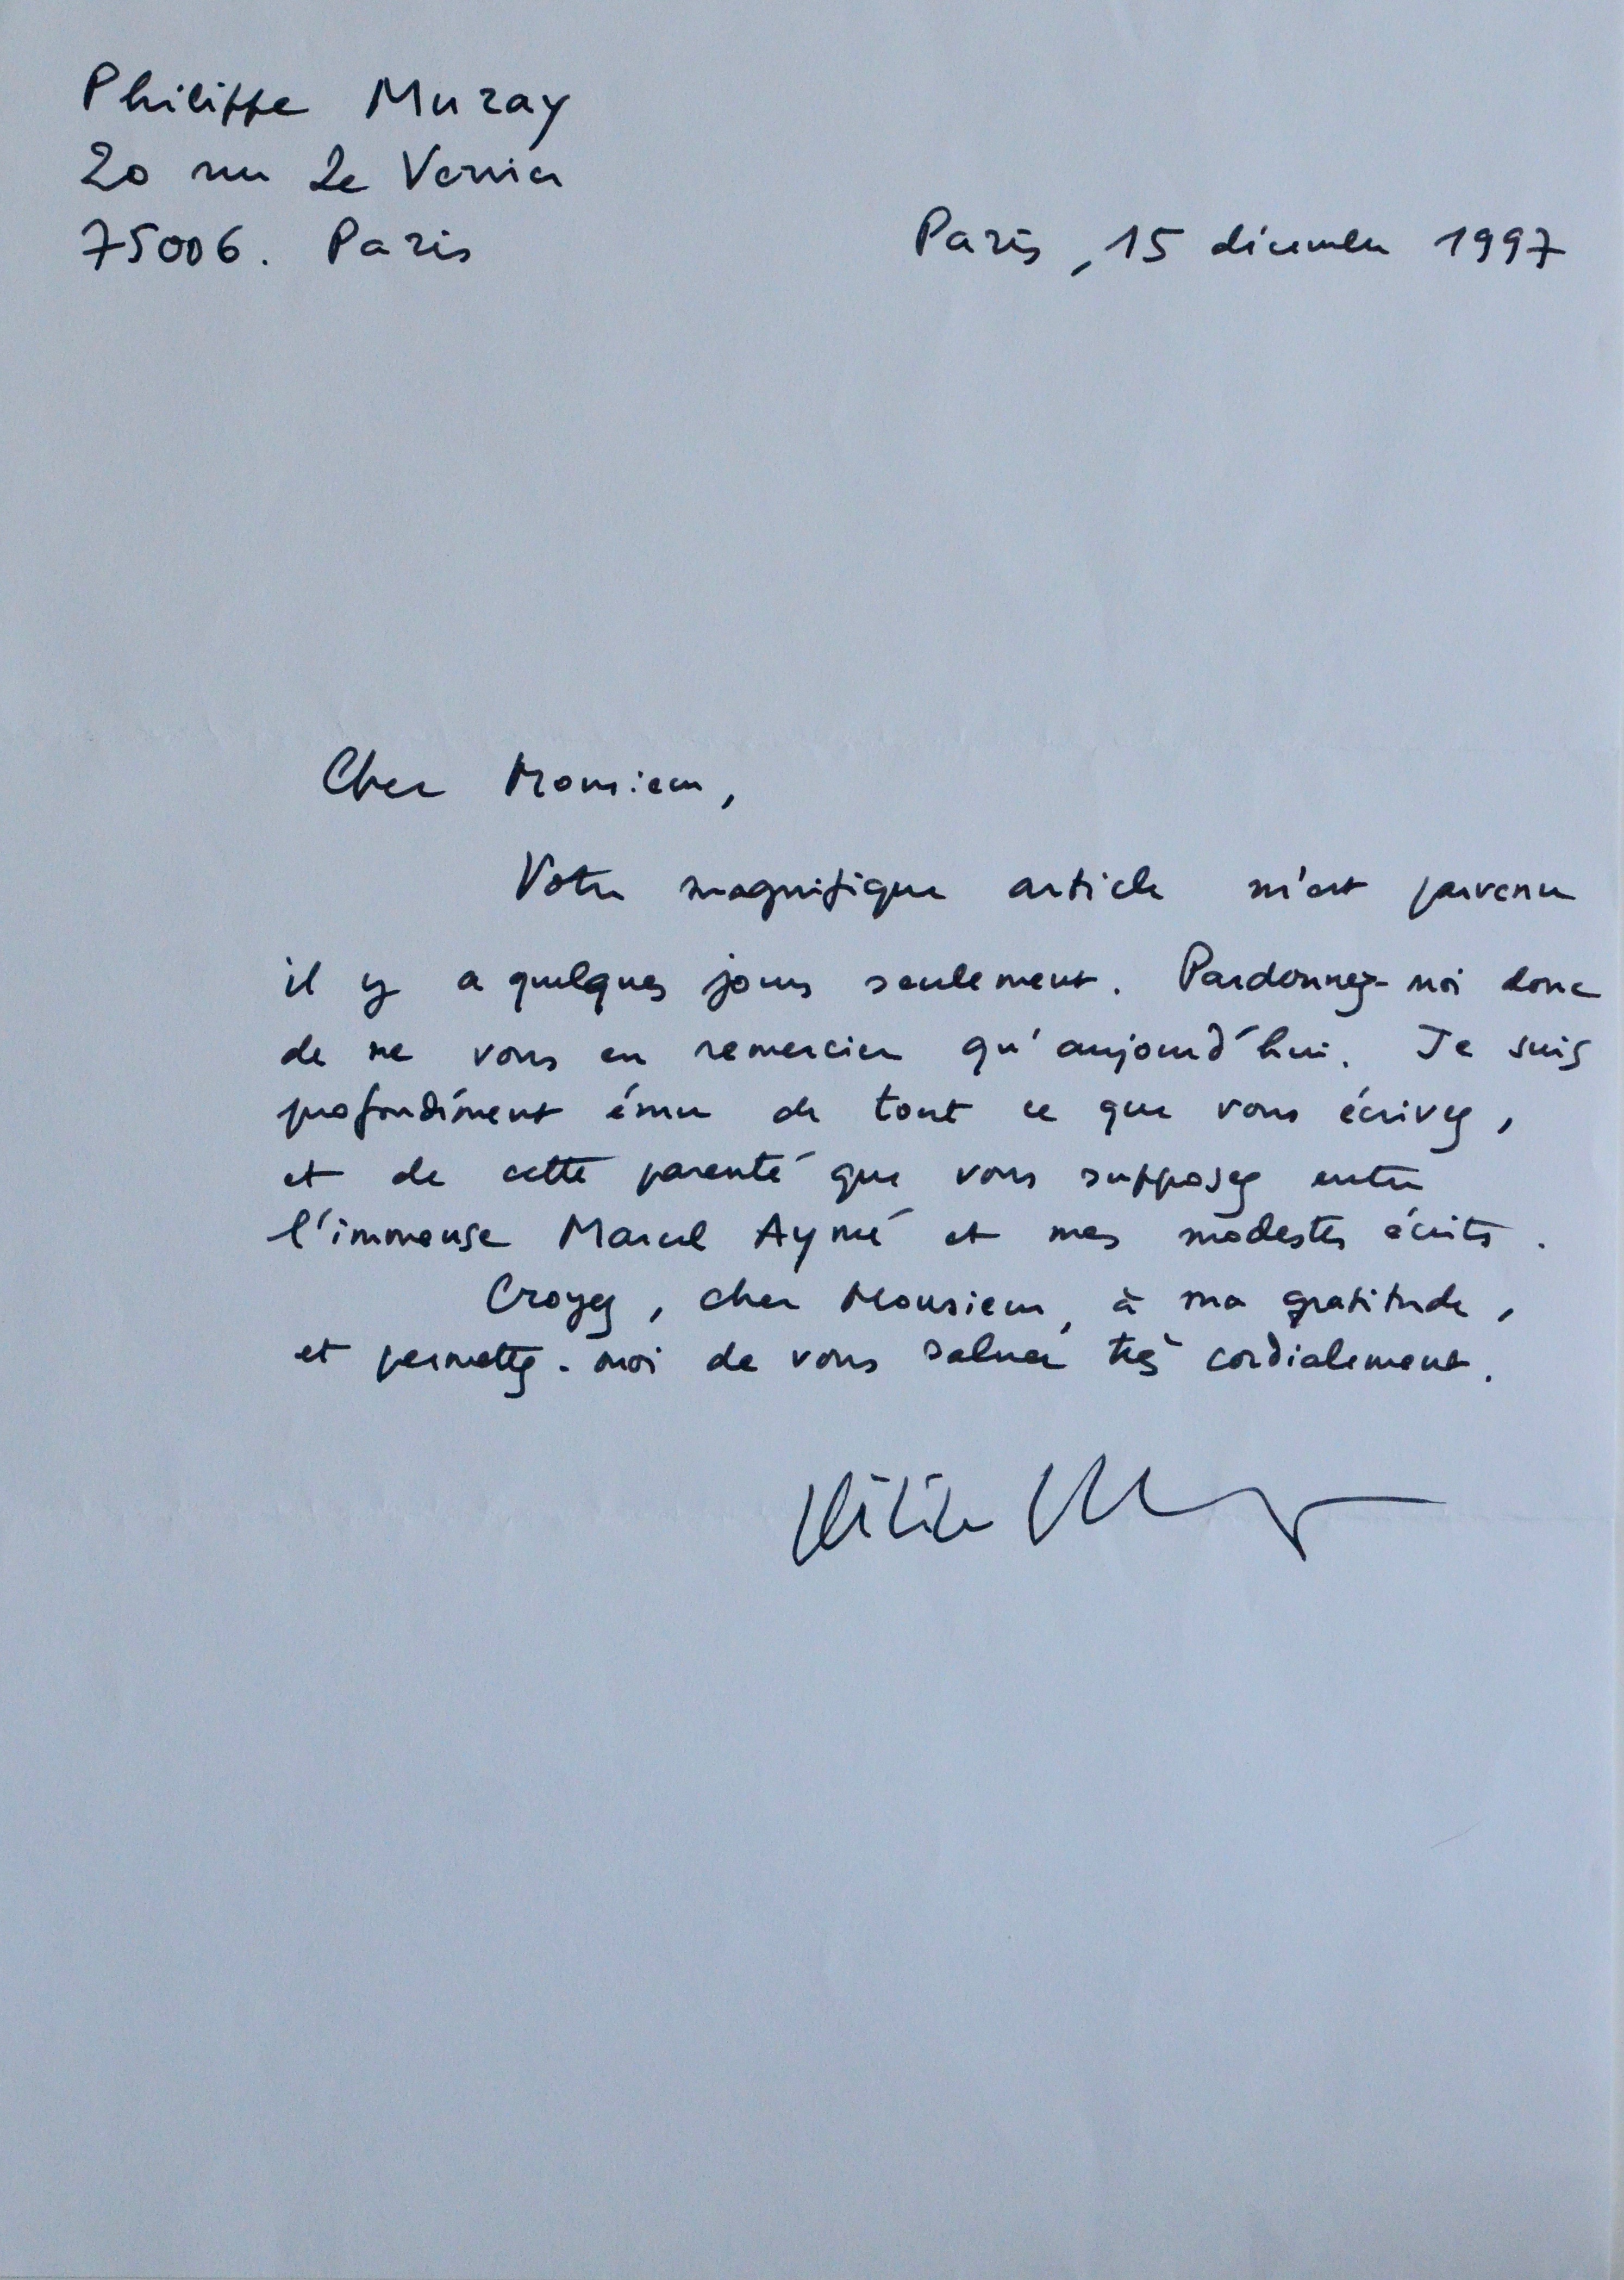 Philippe Muray
20 rue Le Verrier
75006. Paris
Paris, 15 décembre 1997
Cher Monsieur,
Votre magnifique article m'est parvenu
il y a quelques jours seulement. Pardonnez-moi donc
de ne vous en remercier qu'aujourd'hui. Je suis
profondément ému de tout ce que vous écrivez,
et de cette parenté que vous supposez entre
l'immense Marcel Aymé et mes modestes écrits.
Croyez, cher Monsieur, à ma gratitude,
et permettez-moi de vous saluer très cordialement.
Philippe Muray